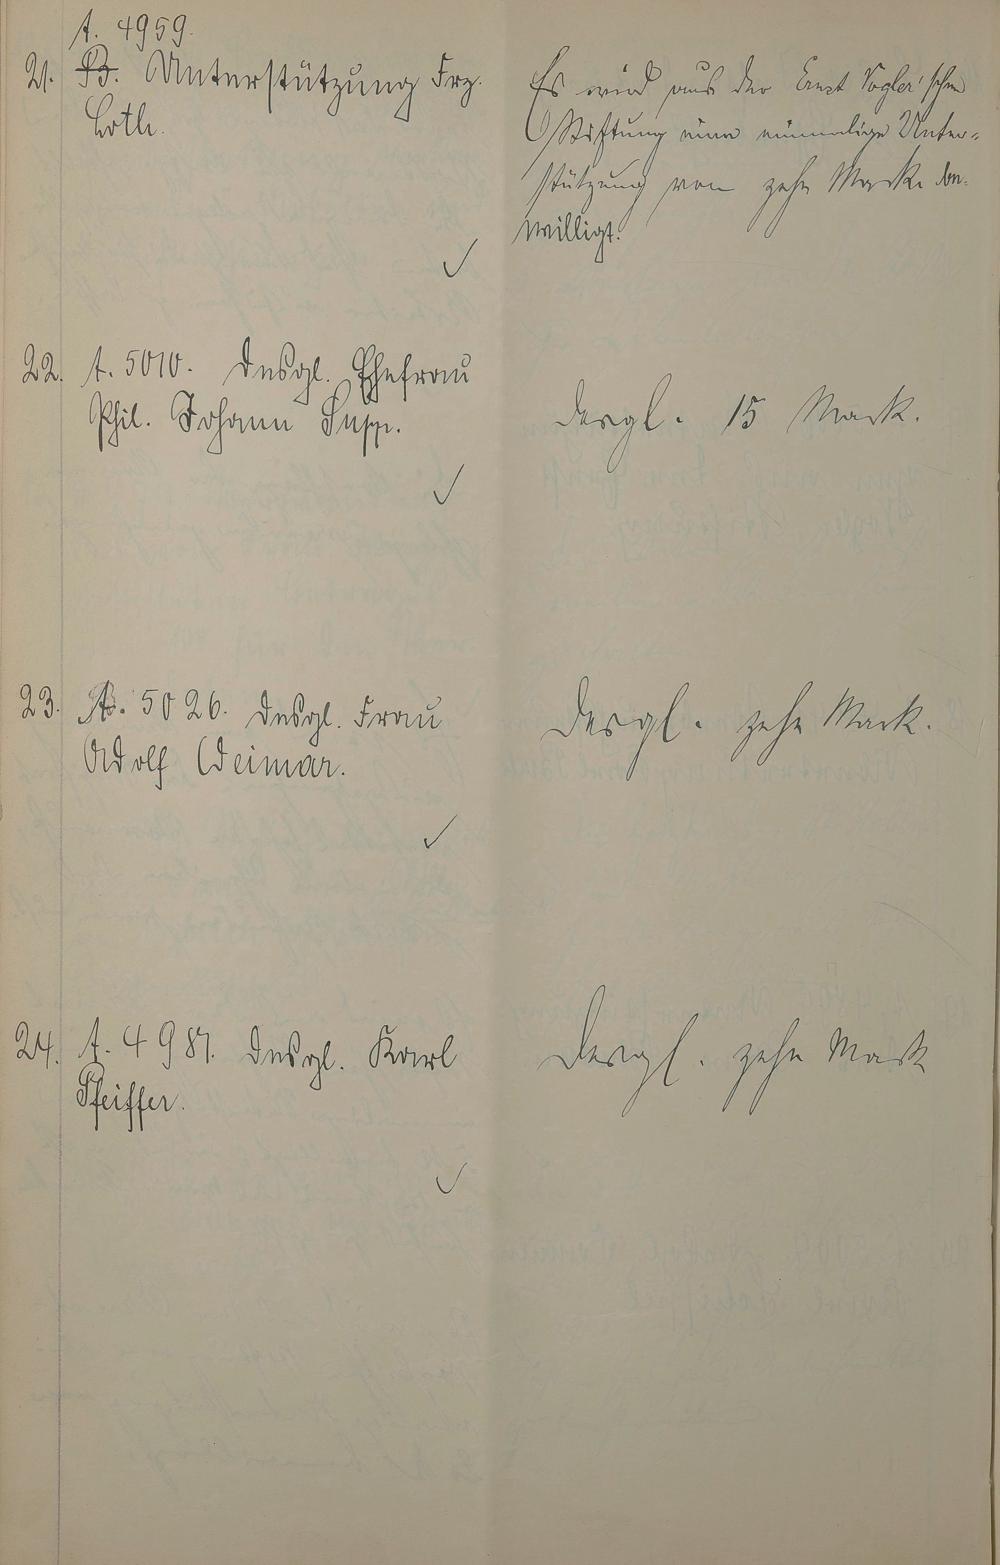 A. 4959.
21. B. Unterstützung Frz.
Loth.
Es wird aus der Ernst Vogler'schen
Stiftung eine einmalige Unter-
stützung von zehn Mark be-
willigt.
22. A. 5010. Desgl. Ehefrau
Phil. Johann Supp.
desgl. 15 Mark.
23. A. 5026. Desgl. Frau
Adolf Weimar.
desgl. zehn Mark.
24. A. 4987. Desgl. Karl
Pfeiffer.
desgl. zehn Mark